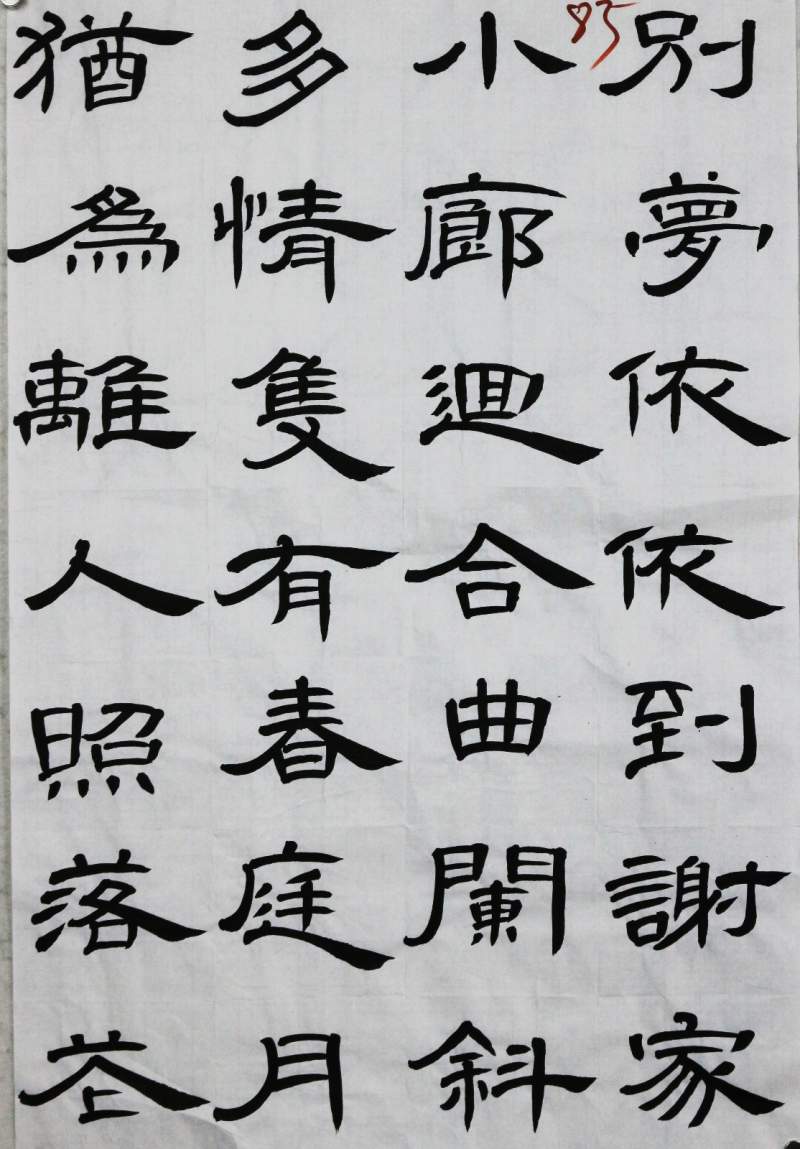 別夢依依到謝家
小廊迴合曲闌斜
多情隻有春庭月
猶為離人照落花
85